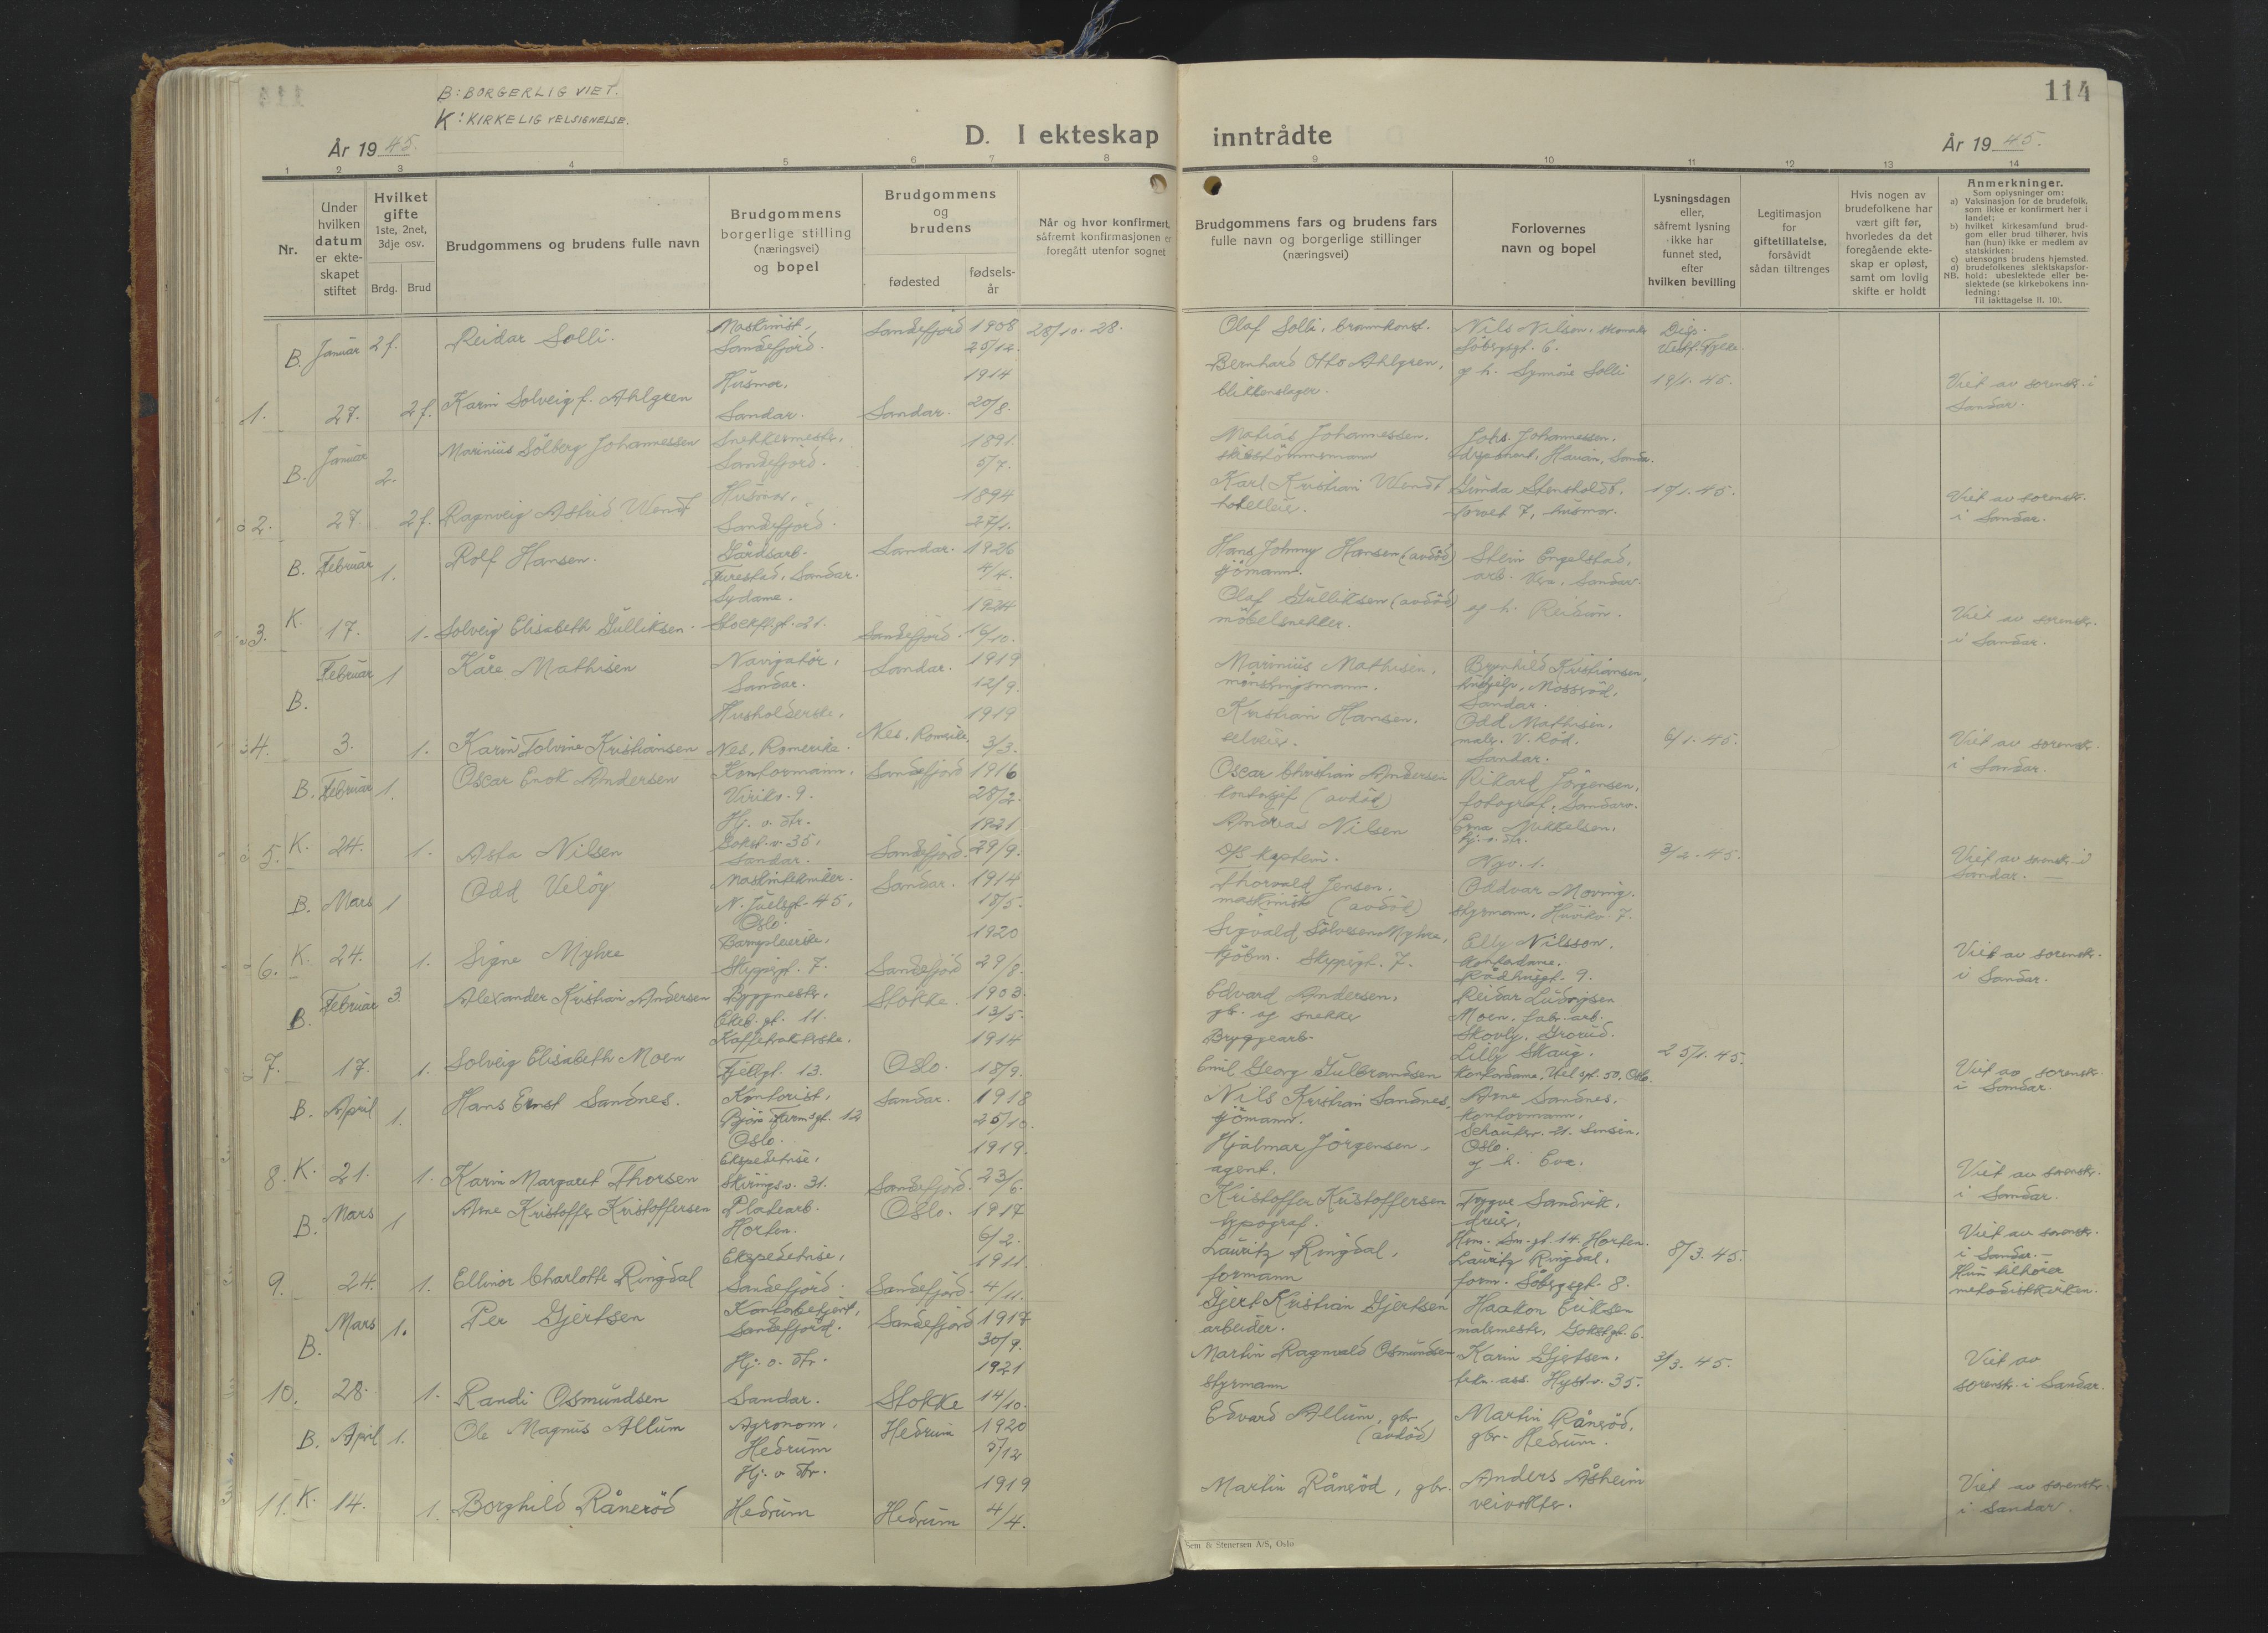 114
B: BORGERLIG VIET.
K: KIRKELIG VELSIGNELSE.
År 1945.
D. I ekteskap inntrådte
År 1945.
1 2 3 4 5 6 7 8 9 10 11 12 13 14
Nr.
Under
hvilken
datum
er ekte-
skapet
stiftet
Hvilket
gifte
1ste, 2net,
3dje osv.
Brdg. Brud
Brudgommens og brudens fulle navn
Brudgommens
borgerlige stilling
(næringsvei)
og bopel
Brudgommens
og
brudens
fødested
fødsels-
år
Når og hvor konfirmert,
såfremt konfirmasjonen er
foregått utenfor sognet
Brudgommens fars og brudens fars
fulle navn og borgerlige stillinger
(næringsvei)
Forlovernes
navn og bopel
Lysningsdagen
eller,
såfremt lysning
ikke har
funnet sted,
efter
hvilken bevilling
Legitimasjon
for
giftetillatelse,
forsåvidt
sådan tiltrenges
Hvis nogen av
brudefolkene har
vært gift før,
hvorledes da det
foregående ekte-
skap er opløst,
samt om lovlig
skifte er holdt
Anmerkninger.
Som oplysninger om:
a) Vaksinasjon for de brudefolk,
som ikke er konfirmert her i
landet;
b) hvilket kirkesamfund brud-
gom eller brud tilhører, hvis
han (hun) ikke er medlem av
statskirken;
c) utensogns brudens hjemsted.
d) brudefolkenes slektskapsfor-
NB. hold: ubeslektede eller be-
slektede (se kirkebokens inn-
ledning:
Til iakttagelse II. 10).
B. Januar 2f. Reidar Solli. Maskinist, Sandefjord. Sandefjord 1908 25/12. 28/10. 28.
Olaf Solli, brannkonst. Nils Nilsen, Söbergsgt. 6. Disp. Vestf. Fylke.
1. 27. 2f. Karin Solveig f. Ahlgren Husmor, Sandar. Sandar. 1914 20/8.
Bernhard Otto Ahlgren, blikkenslager. og h. Synnöve Solli 19/1. 45. Viet av sorenskr. i Sandar.
B. Januar 2. Marinius Sölberg Johannessen Snekkermestr, Sandefjord. 1891. 5/7.
Matias Johannessen, Johs. Johannessen, disponent,
2. 27. 2f. Ragnveig Astrid Wendt Husmor, Sandefjord. 1894 27/1.
Karl Kristian Wendt Gunda Stensholdt, Torvet 7, husmor. 19/1. 45. Viet av sorenskr. i Sandar.
B. Februar 1. Rolf Hansen. Gårdsarb. Furestad, Sandar. Sandar. 1926 4/4.
Hans Johnny Hansen (avdöd) sjömann. Stein Engelstad, arb. Vera, Sandar.
3. K. 17. 1. Solveig Elisabeth Gulliksen. Sydame. Stockfl.gt. 21. Sandefjord. 1924 16/10.
Olaf Gulliksen (avdöd) möbelsnekker. og h. Reidun. Viet av sorenskr. i Sandar.
B. Februar 1 Kåre Mathisen Navigatör, Sandar. Sandar. 1919 12/9.
Marinius Mathisen, mönstringsmann. Brynhild Kristiansen, hushjelp, Mosseröd, Sandar.
4. 3. 1. Karin Tolvine Kristiansen Husholderske, Nes, Romerike. Nes, Romerike 1919 3/3.
Kristian Hansen, Odd Mathisen, maler. V. Röd. Sandar. 6/1. 45. Viet av sorenskr. i Sandar.
B. Februar 1. Oscar Enok Andersen Kontormann, Virikv. 9. Sandefjord 1916 28/2.
Oscar Christian Andersen kontorsjef (avdöd) Rikard Jörgensen, fotograf,
5. K. 24. 1. Asta Nilsen Hj. v. str. Gokst.v. 35, Sandar. Sandefjord. 1921 29/9.
Andreas Nilsen D/S kaptein. Erna Mikkelsen, hj. v. str. 3/2. 45. Viet av sorenskr. i Sandar. —
B. Mars 1 Odd Velöy Maskintekniker. N. Juelsgt. 45, Oslo. Sandar. 1914 18/5.
Thorvald Jensen. maskinist (avdöd) Oddvar Moving. styrmann, Huvikv. 7.
6. K. 24. 1. Signe Myhre Barnepleierske, Skippergt. 7. Sandefjord 1920 29/8.
Sigvald Sölvesen Myhre, kjöbm. Skippergt. 7. Elly Nilsson, kontordame, Rådhusgt. 9. Viet av sorenskr. i Sandar.
B. Februar 3. Alexander Kristian Andersen Byggmestr, Ekeb. gt. 11. Stokke. 1903. 13/5.
Edvard Andersen, gb. og snekker Reidar Ludvigsen Moen, fabr. arb. Skovly, Grorud.
7. 17. 1. Solveig Elisabeth Moen Kaffetrakterske. Fjellgt. 13. Oslo. 1914 18/9.
Bryggearb. Emil Georg Gulbrandsen Lilly Skaug. kontordame, Uel.gt. 50, Oslo. 25/1. 45. Viet av sorenskr. i Sandar.
B. April 1. Hans Ernst Sandnes. Kontorist, Björn Farm.gt. 12 Oslo. Sandar. 1918 25/10.
Nils Kristian Sandnes, sjömann. Arne Sandnes, kontormann, Schouterr. 21. Sinsen, Oslo.
8. K. 21. 1. Karin Margaret Thorsen Ekspeditrise, Skiringsv. 31. Sandefjord. 1919. 23/6.
Hjalmar Jörgensen, agent. og h. Eva. Viet av sorenskr. i Sandar.
B. Mars 1 Arne Kristoffer Kristoffersen Platearb. Horten. Oslo. 1917 6/2.
Kristoffer Kristoffersen typograf. Trygve Sandvik, dreier, gt. 14. Horten.
9. 24. 1. Ellinor Charlotte Ringdal Ekspeditrise, Sandefjord. Sandefjord. 1911. 4/11.
Lauritz Ringdal, formann Lauritz Ringdal, form. Söbergsgt. 8. 8/3. 45. Viet av sorenskr. i Sandar. — Hun tilhörer metodistkirken.
B. Mars 1. Per Gjertsen Kontorbetjent, Sandefjord. Sandefjord 1917 30/9.
Gjert Kristian Gjertsen arbeider. Haakon Eriksen malermestr, Gokstgt. 6.
10. 28. 1. Randi Osmundsen Hj. v. str. Sandar. Stokke 1921 14/10.
Martin Ragnvald Osmundsen styrmann Karin Gjertsen, tekn. ass. Hystv. 35. 3/3. 45. Viet av sorenskr. i Sandar.
B. April 1. Ole Magnus Allum Agronom, Hedrum Hedrum 1920 5/12
Edvard Allum, gbr. (avdöd) Martin Råneröd, gbr. Hedrum.
11. K. 14. 1. Borghild Råneröd Hj. v. str. Hedrum Hedrum 1919 4/4.
Martin Råneröd, gbr. Anders Åsheim veivokter. Viet av sorenskr. i Sandar.
Sem & Stenersen A/S, Oslo